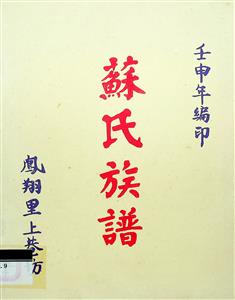 壬申年編印
蘇氏族譜
鳳翔里上巷方
.9